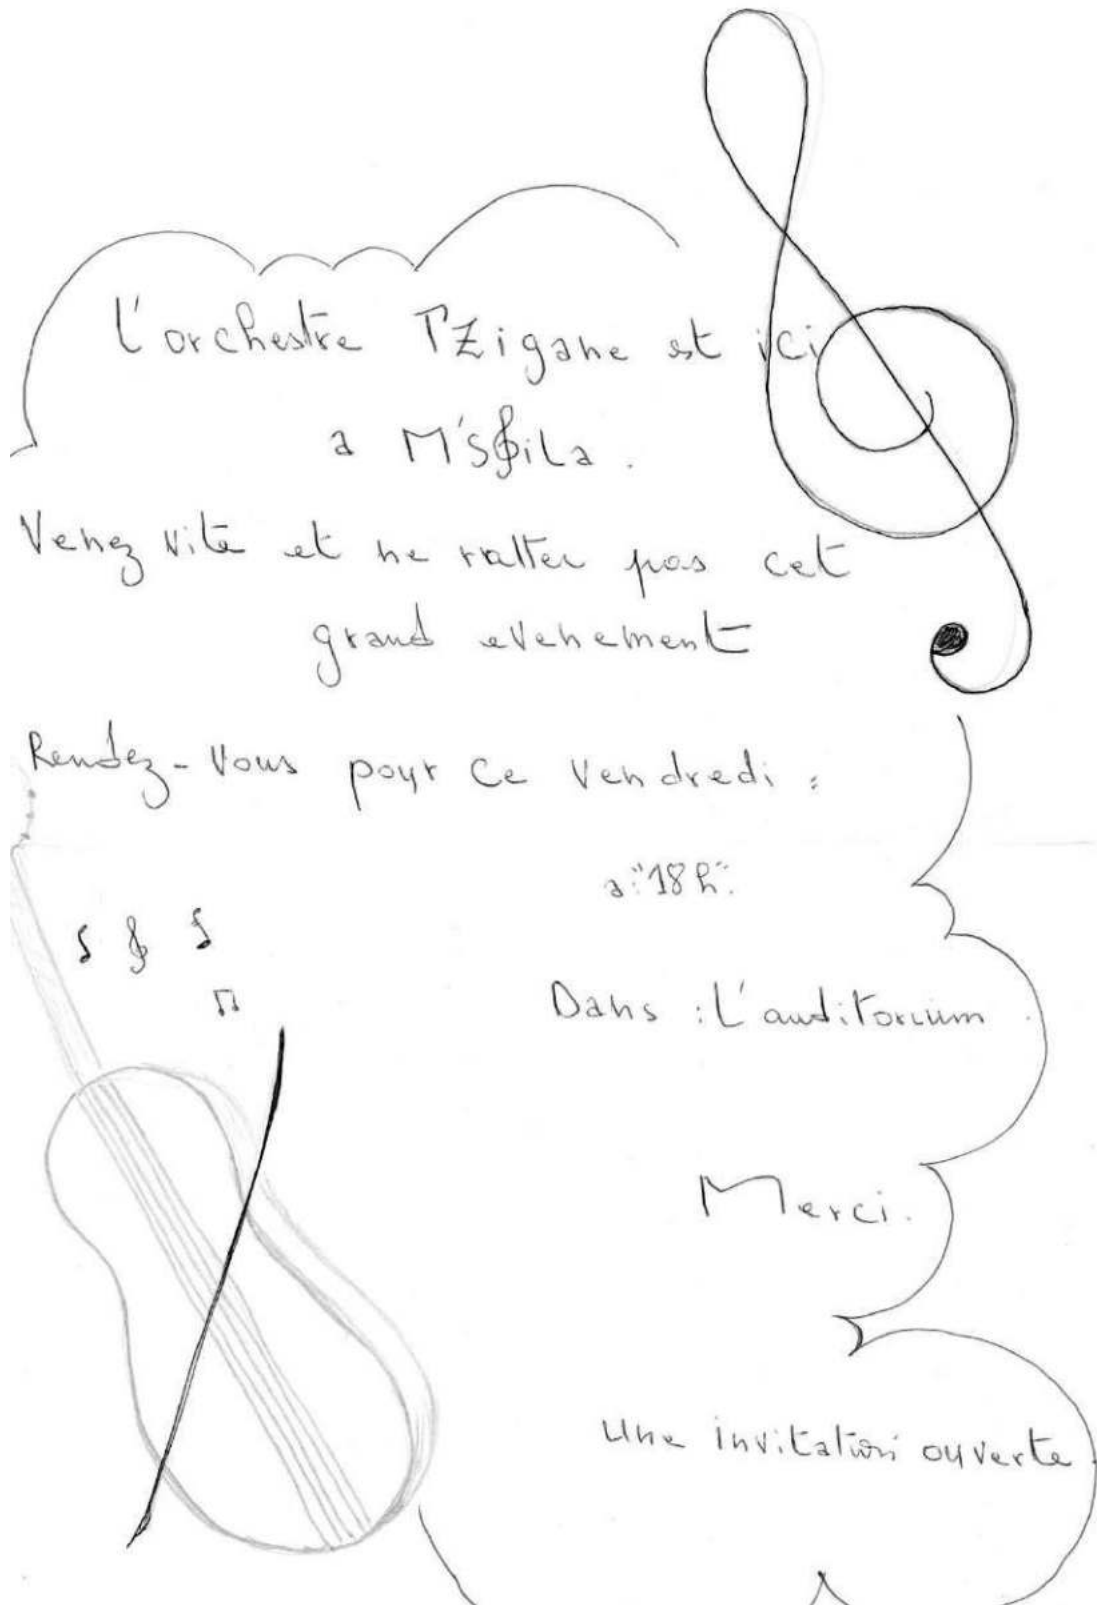 L'orchestre TZigane est ici
a M'sila.
Venez vite et ne ratter pas cet
grand evenement
Rendez-Vous pour ce Vendredi :
a:"18h".
Dans : L'auditorium.
Merci.
Une invitation ouverte.